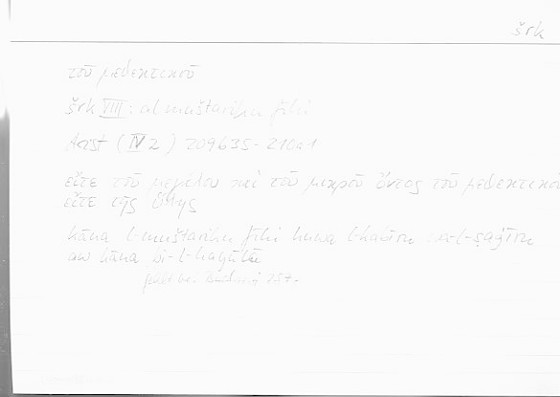 šrk
τοῦ μεθεκτικοῦ
šrk VIII: al muštariku fīhi
Arist (IV 2) 209b35-210a1
εἴτε τοῦ μεγάλου καὶ τοῦ μικροῦ ὄντος τοῦ μεθεκτικοῦ
εἴτε τῆς ὕλης
kāna l-muštariku fīhi huwa l-kabīru wa-l-ṣaġīru
aw kāna l-hayūlā